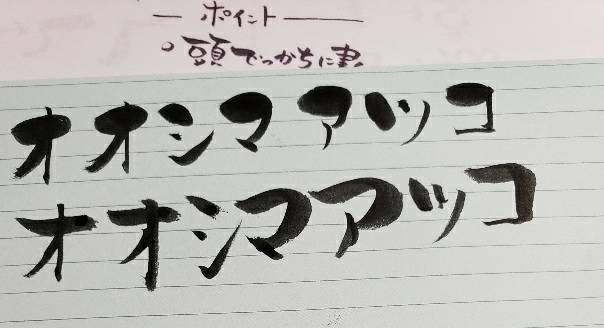 ポイント
○頭でっかちに書
オオシマ アツコ
オオシマアツコ